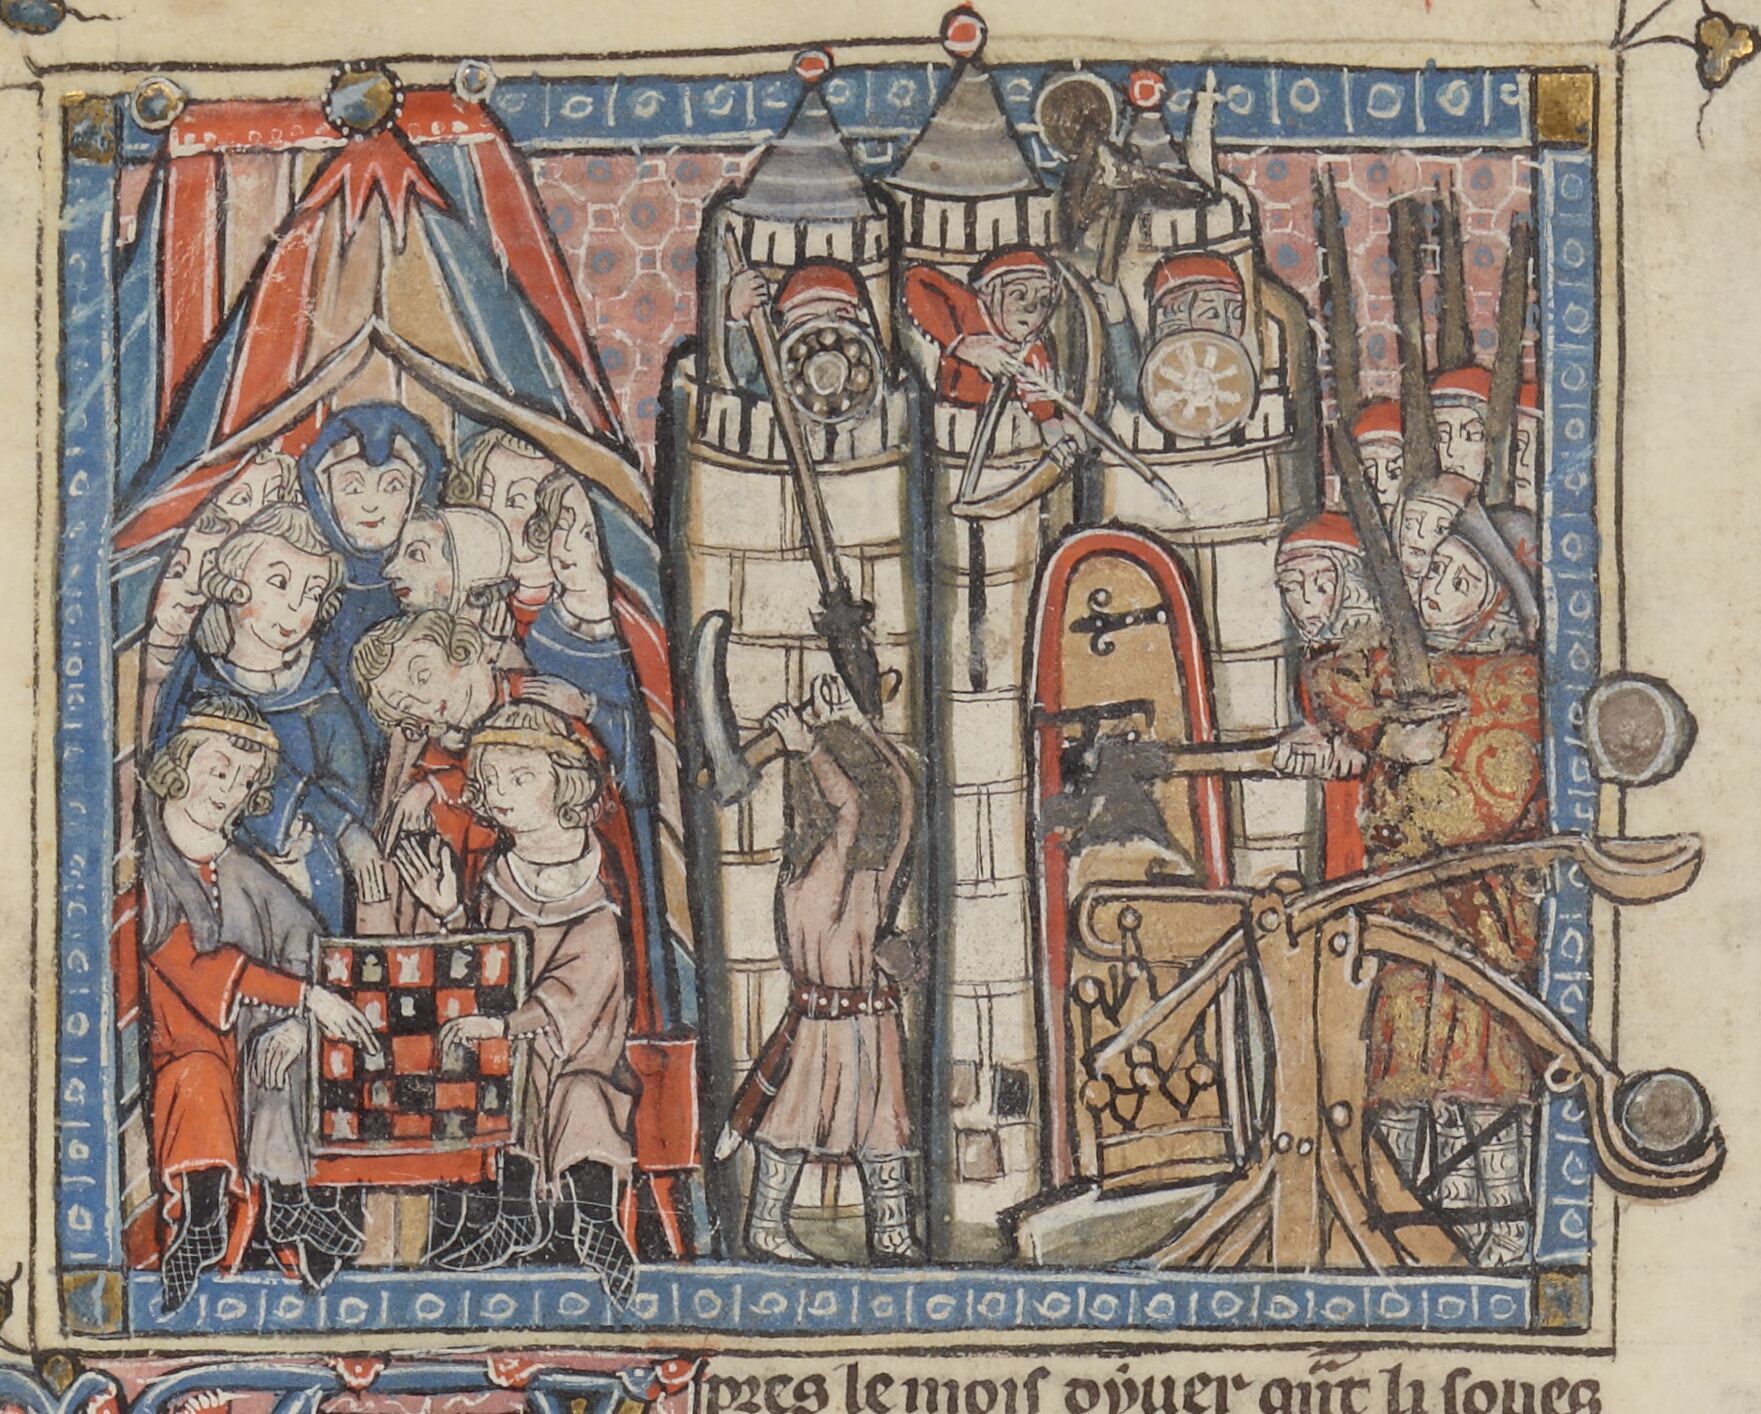 pres le mois dyuer qnt li soues